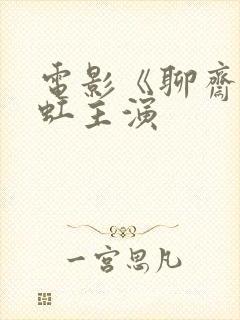 電影《聊齋
虹主演
一宮思凡